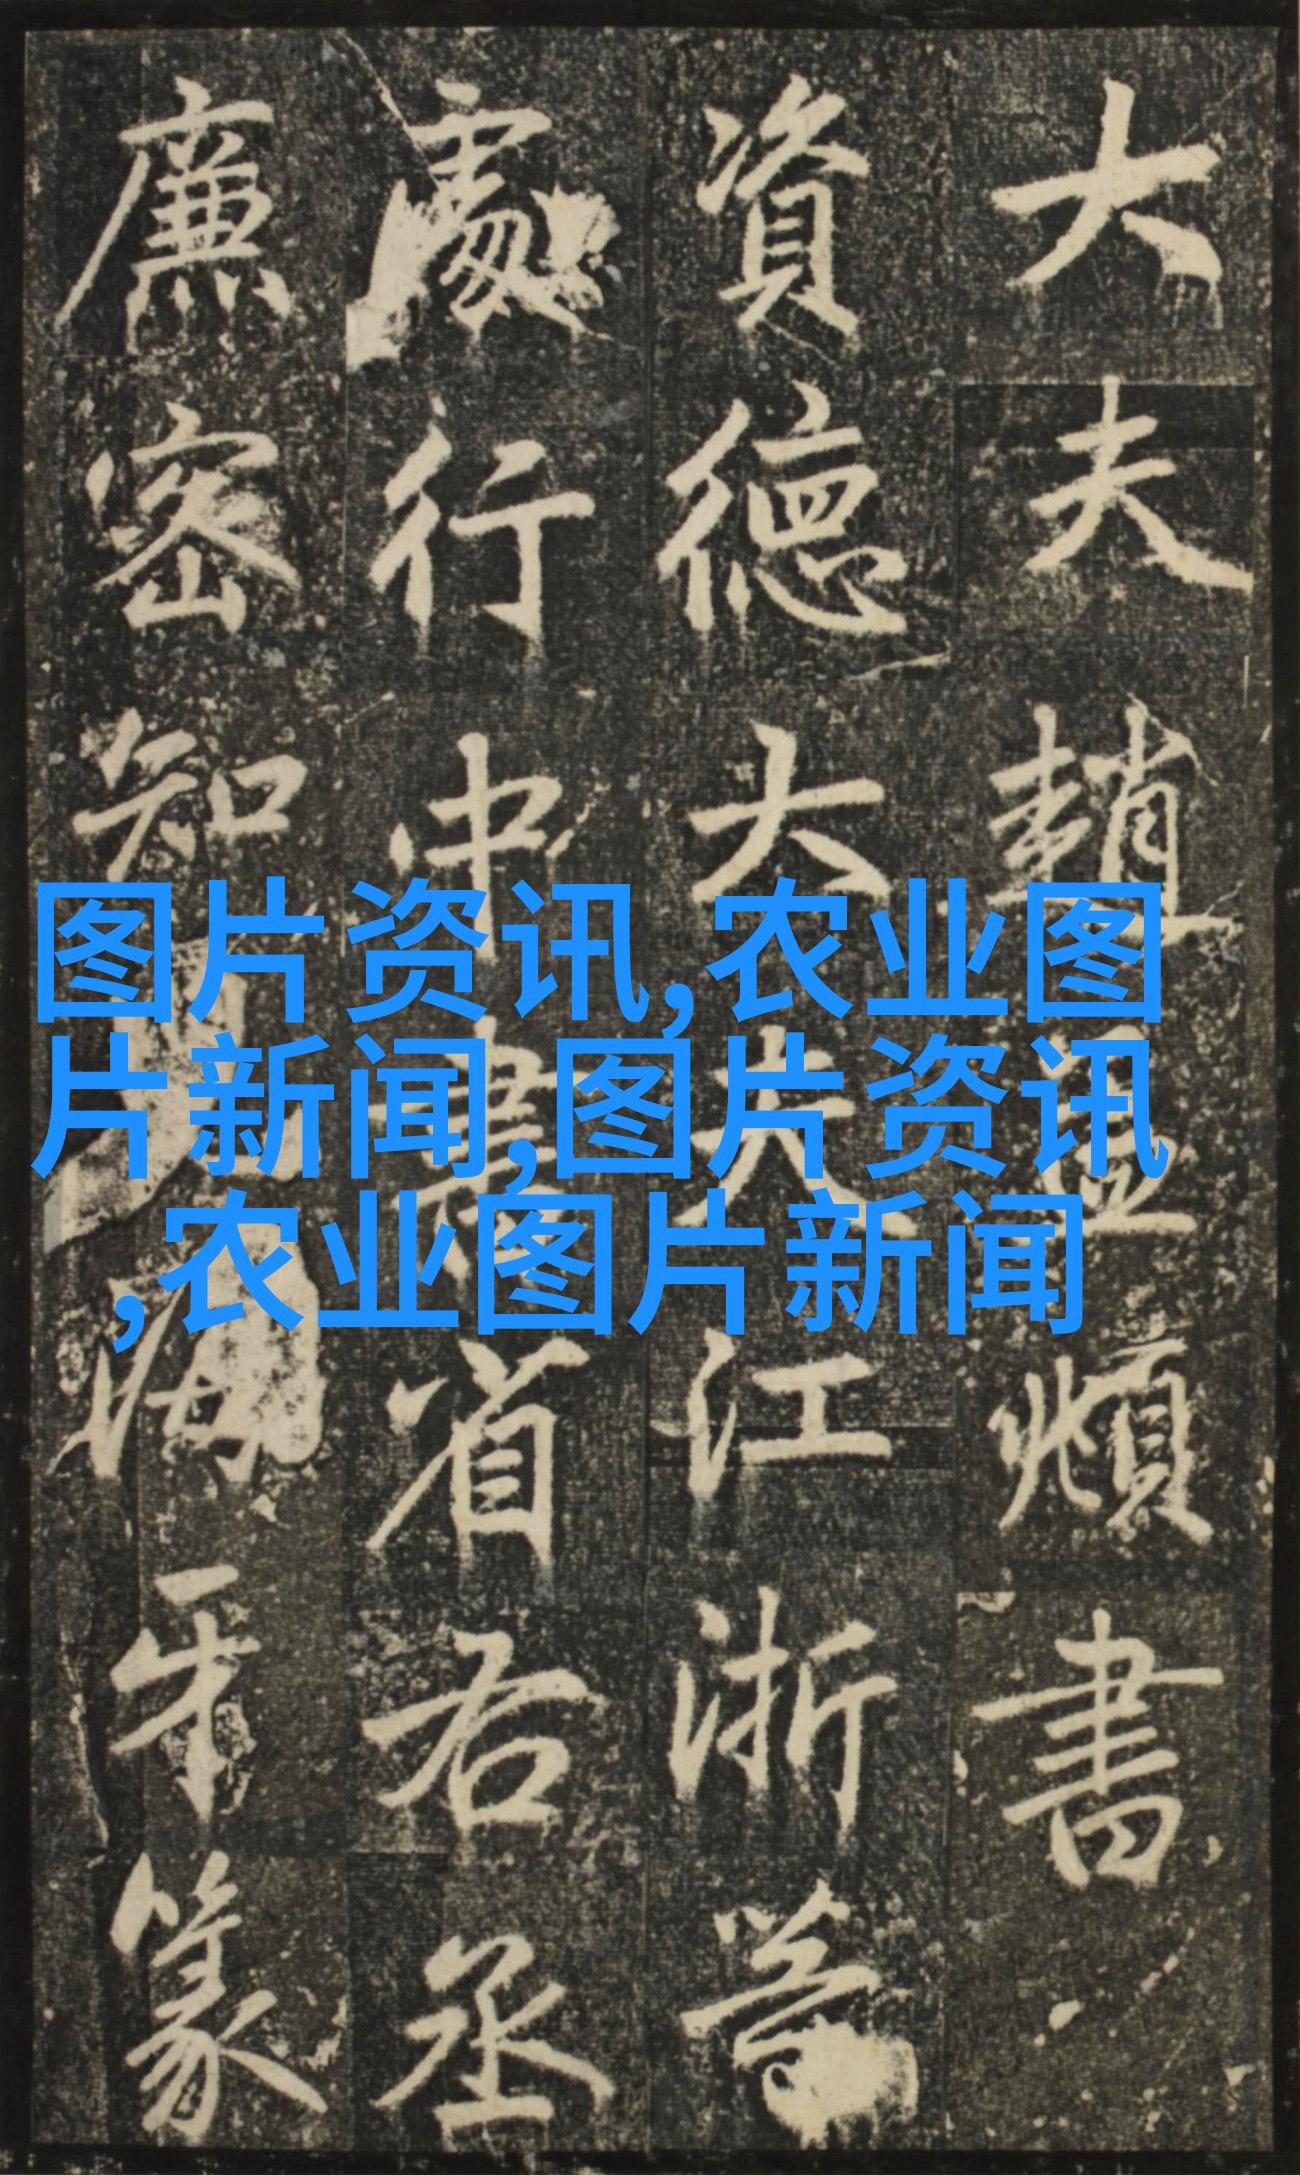 大夫趙孟頫書
資德大夫江浙等
處行中書省右丞
廉密知海牙篆
图片资讯,农业图
片新闻,图片资讯
,农业图片新闻